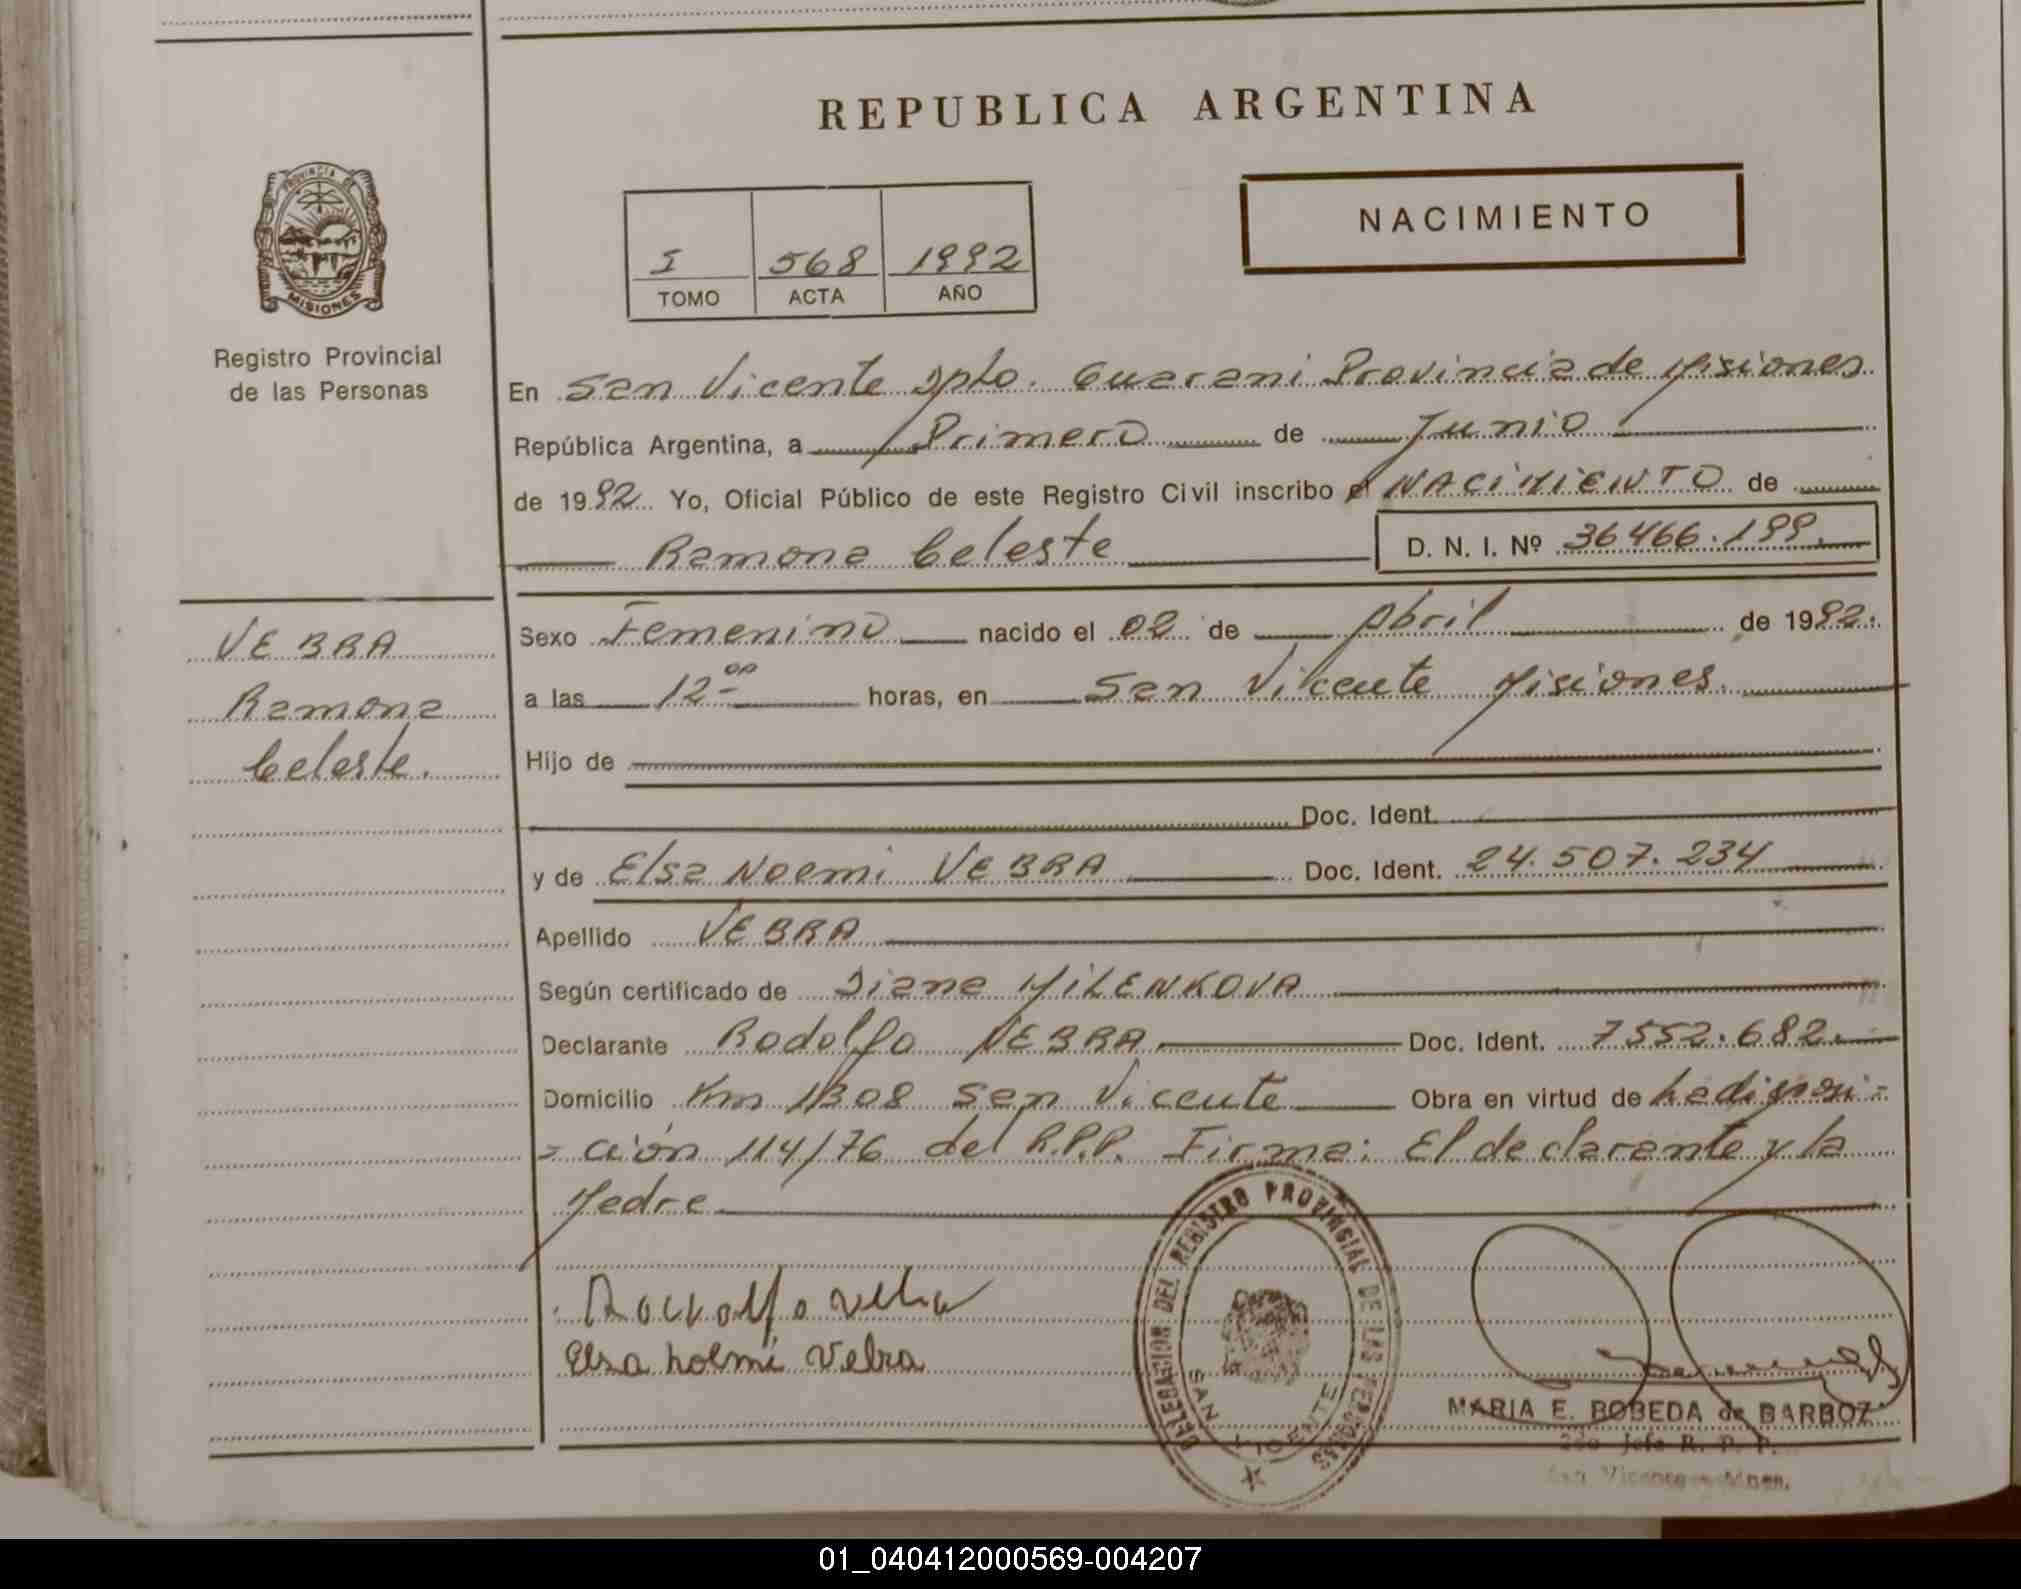 REPUBLICA ARGENTINA
PROVINCIA DE
MISIONES
NACIMIENTO
I 568 1992
TOMO ACTA AÑO
Registro Provincial
de las Personas
En San Vicente Dpto. Guarani Provincia de Misiones.
República Argentina, a Primero de Junio
de 1992 Yo, Oficial Público de este Registro Civil inscribo el NACIMIENTO de
Ramona Celeste D. N. I. Nº 36466.199.
VEBRA
Ramona
Celeste.
Sexo Femenino nacido el 02 de Abril de 1992.
a las 12 00 horas, en San Vicente Misiones.
Hijo de
Doc. Ident.
y de Elsa Noemi VEBRA Doc. Ident. 24.507.234
Apellido VEBRA
Según certificado de Diana MILENKOVA
Declarante Rodolfo VEBRA Doc. Ident. 7552.682.
Domicilio Km 1308 San Vicente Obra en virtud de La disposi=
=ción 114/76 del R.P.P. Firma: El declarante y la
Madre
Elsa Noemi Vebra
DELEGACION DEL REGISTRO PROVINCIAL DE LAS PERSONAS
SAN VICENTE
MARIA E. BOBEDA de BARBOZ
2do Jefe R. P. P.
San Vicente - Mnes.
01_040412000569-004207